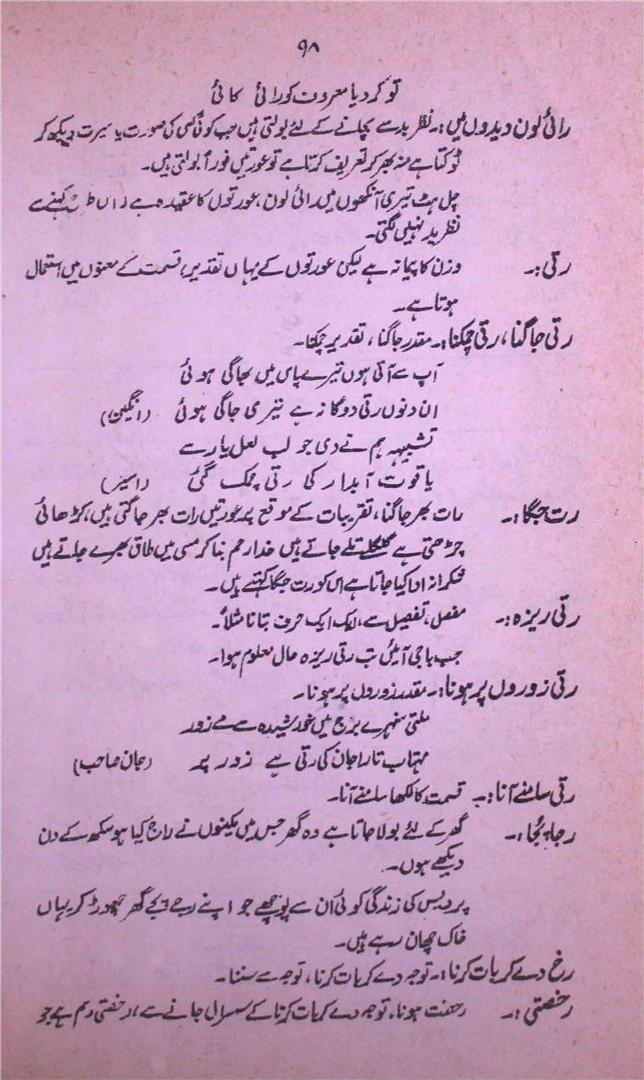 ۹۸
تو کر دیا معروف کو رائی کائی
رائی لون دیدوں میں:۔ نظر بد سے بچانے کے لئے بولتی ہیں جب کوئی کسی کی صورت یا سیرت دیکھ کر
ٹوکتا ہے منہ بھر کر تعریف کرتا ہے تو عورتیں فوراً بولتی ہیں۔
چل ہٹ تیری آنکھوں میں رائی لون، عورتوں کا عقیدہ ہے کہنے سے
نظر بد نہیں لگتی۔
رتی:۔ وزن کا پیمانہ ہے لیکن عورتوں کے یہاں تقدیر، قسمت کے معنوں میں استعمال
ہوتا ہے۔
رتی جاگنا، رتی چمکنا:۔ مقدر جاگنا، تقدیر چمکنا۔
آپ سے آئی ہوں تیرے پاس میں بھاگی ہوئی
ان دنوں رتی دوگانہ ہے تیری جاگی ہوئی (انگین)
تشبیہہ ہم نے دی جو لب لعل یار سے
یاقوت آبدار کی رتی چمک گئی (اسیر)
رت جگا:۔ رات بھر جاگنا، تقریبات کے موقع پر عورتیں رات بھر جاگتی ہیں، کڑھائی
چڑھتی ہے گلگلے تلے جاتے ہیں خدا رحم بنا کر مسی میں طاق بھرے جاتے ہیں
شکرانہ ادا کیا جاتا ہے اس کو رت جگا کہتے ہیں۔
رتی ریزہ:۔ مفصل، تفصیل سے، ایک ایک حرف بتانا مثلاً۔
جب باجی آئیں تب رتی ریزہ حال معلوم ہوا۔
رتی زوروں پر ہونا:۔ مقدر زوروں پر ہونا۔
ملتی سنہرے برج میں خورشید سے زور
مہتاب تارا جان کی رتی ہے زور پر (جان صاحب)
رتی سامنے آنا:۔ قسمت کا لکھا سامنے آنا۔
رجا پجا:۔ گھر کے لئے بولا جاتا ہے وہ گھر جس میں مکینوں نے راج کیا ہو سکھ کے دن
دیکھے ہوں۔
پردیس کی زندگی کوئی ان سے پوچھے جو اپنے رجے پجے گھر چھوڑ کر یہاں
خاک چھان رہے ہیں۔
رخ دے کر بات کرنا:۔ توجہ دے کر بات کرنا، توجہ سے سننا۔
رخصتی:۔ رخصت ہونا، توجہ دے کر بات کرنا کے سسرال جانے سے، رخصتی رسم ہے جو